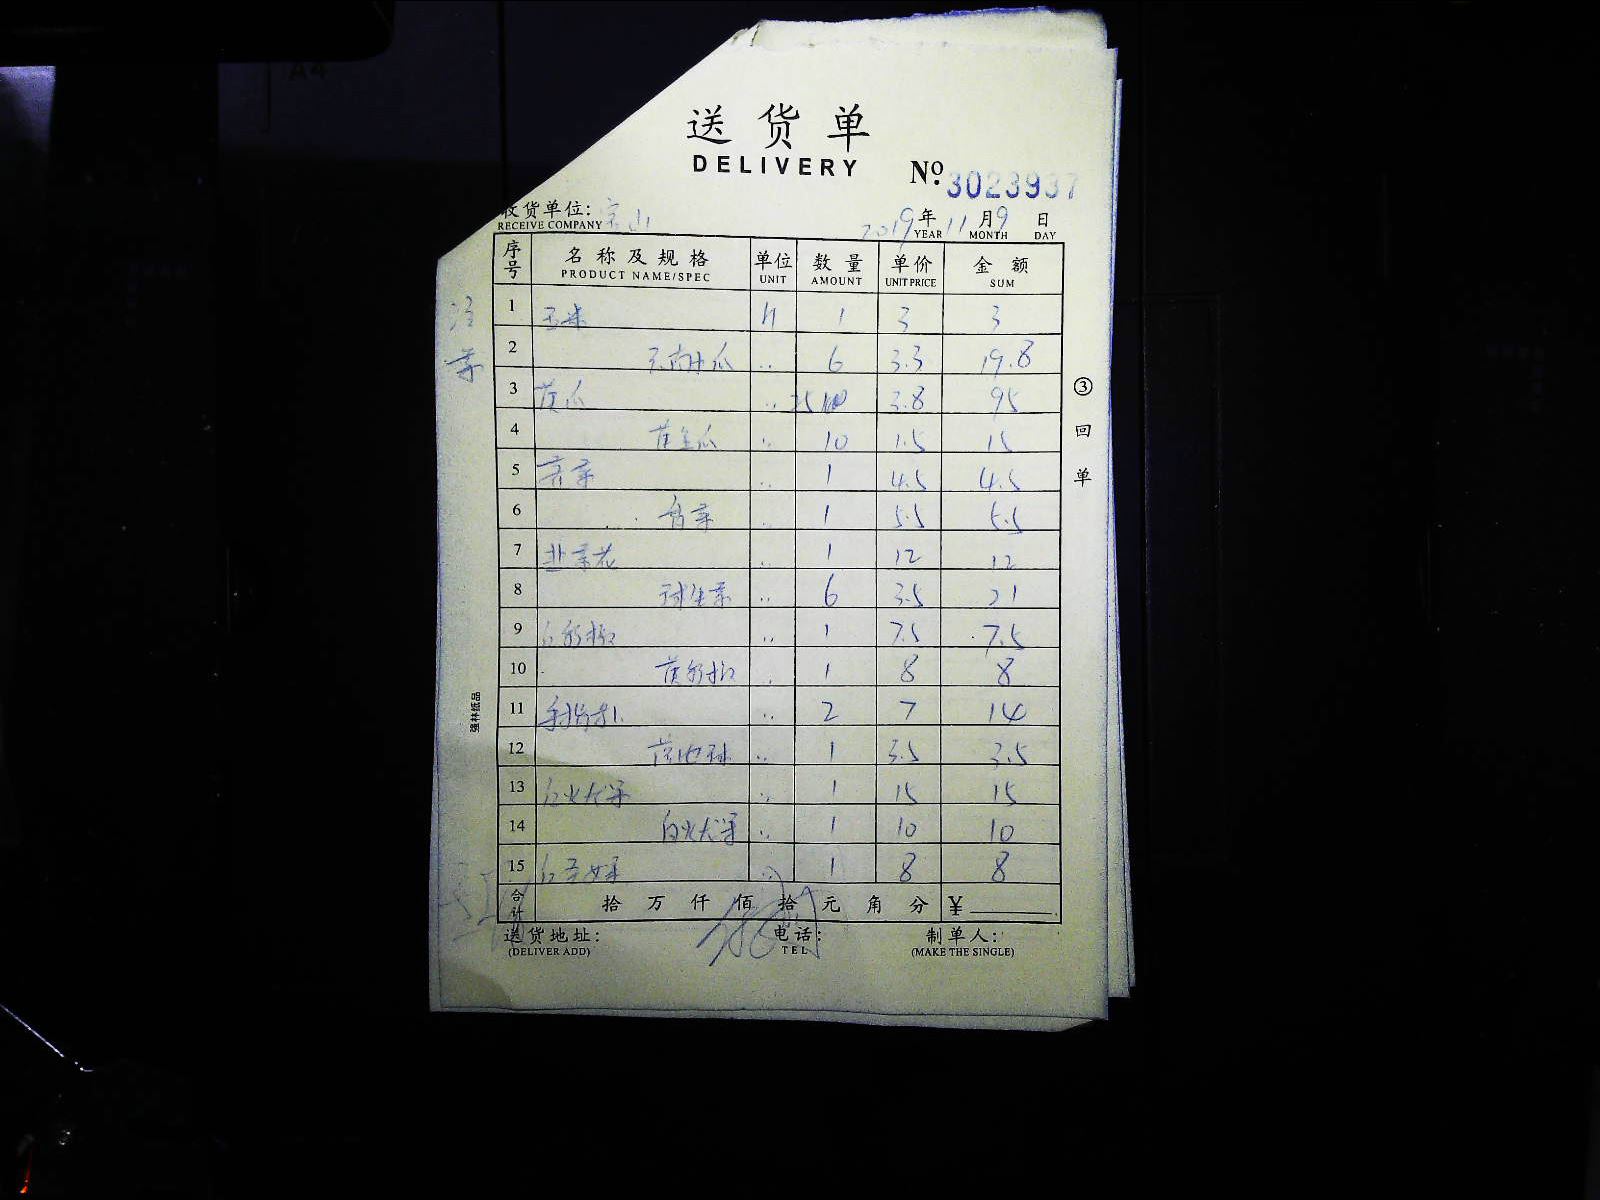 送货单
DELIVERY
№ 3023937
收货单位: 宝山 2019年11月9日
RECEIVE COMPANY YEAR MONTH DAY
序号 名称及规格 单位 数量 单价 金额
PRODUCT NAME/SPEC UNIT AMOUNT UNIT PRICE SUM
1 玉米 斤 1 3 3
2 瓜 〃 6 3.3 19.8
3 黄瓜 〃 25 3.8 95
4 黄金瓜 〃 10 1.5 15
5 芹菜 〃 1 4.5 4.5
6 香菜 〃 1 5.5 5.5
7 韭菜花 〃 1 12 12
8 球生菜 〃 6 3.5 21
9 红彩椒 〃 1 7.5 7.5
10 黄彩椒 〃 1 8 8
11 〃 2 7 14
12 〃 1 3.5 3.5
13 〃 1 15 15
14 〃 1 10 10
15 〃 1 8 8
合计 拾 万 仟 佰 拾 元 角 分 ¥
送货地址: 电话: 制单人:
(DELIVER ADD) TEL (MAKE THE SINGLE)
③回单
强林纸品
A4